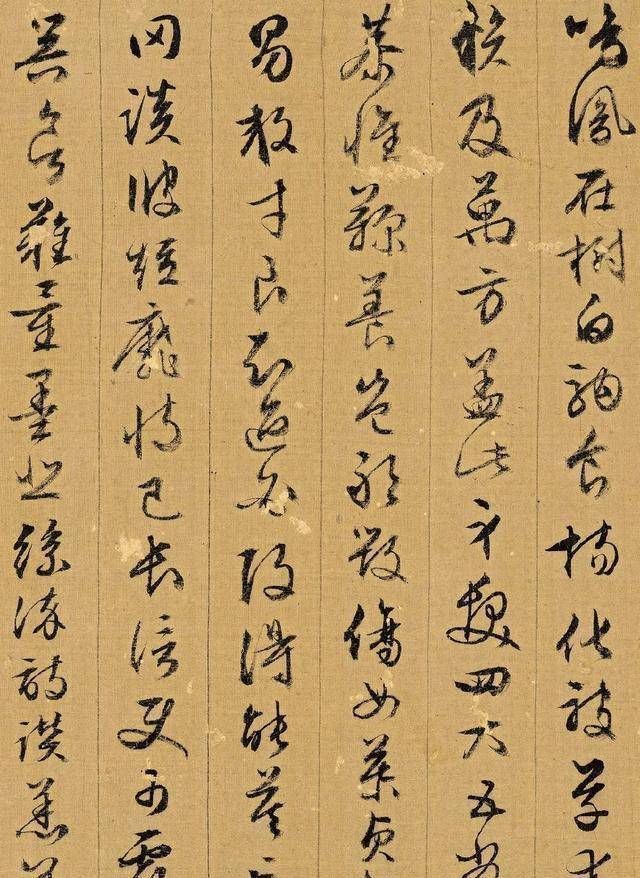 鳴鳳在樹白駒食場化被草木
賴及萬方蓋此身髮四大五常
恭惟鞠養豈敢毀傷女慕貞
男效才良知過必改得能莫
罔談彼短靡恃己長信使可覆
器欲難量墨悲絲染詩讚羔